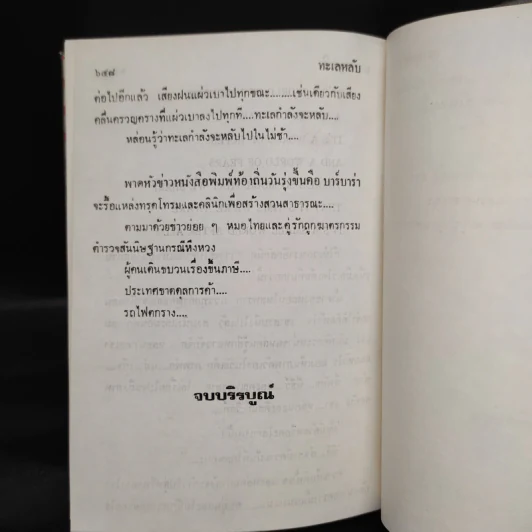 ๖๔๗ ทะเลหลับ
ต่อไปอีกแล้ว เสียงฝนแผ่วเบาไปทุกขณะ........เช่นเดียวกับเสียง
คลื่นครวญครางที่แผ่วเบาลงไปทุกที....ทะเลกำลังจะหลับ....
หล่อนรู้ว่าทะเลกำลังจะหลับไปในไม่ช้า....
พาดหัวข่าวหนังสือพิมพ์ท้องถิ่นวันรุ่งขึ้นคือ บาร์บาร่า
จะรื้อแหล่งทรุดโทรมและคลินิกเพื่อสร้างสวนสาธารณะ....
ตามมาด้วยข่าวย่อย ๆ หมอไทยและคู่รักถูกฆาตกรรม
ตำรวจสันนิษฐานกรณีหึงหวง
ผู้คนเดินขบวนเรื่องขึ้นภาษี....
ประเทศขาดดุลการค้า....
รถไฟตกราง....
จบบริบูรณ์